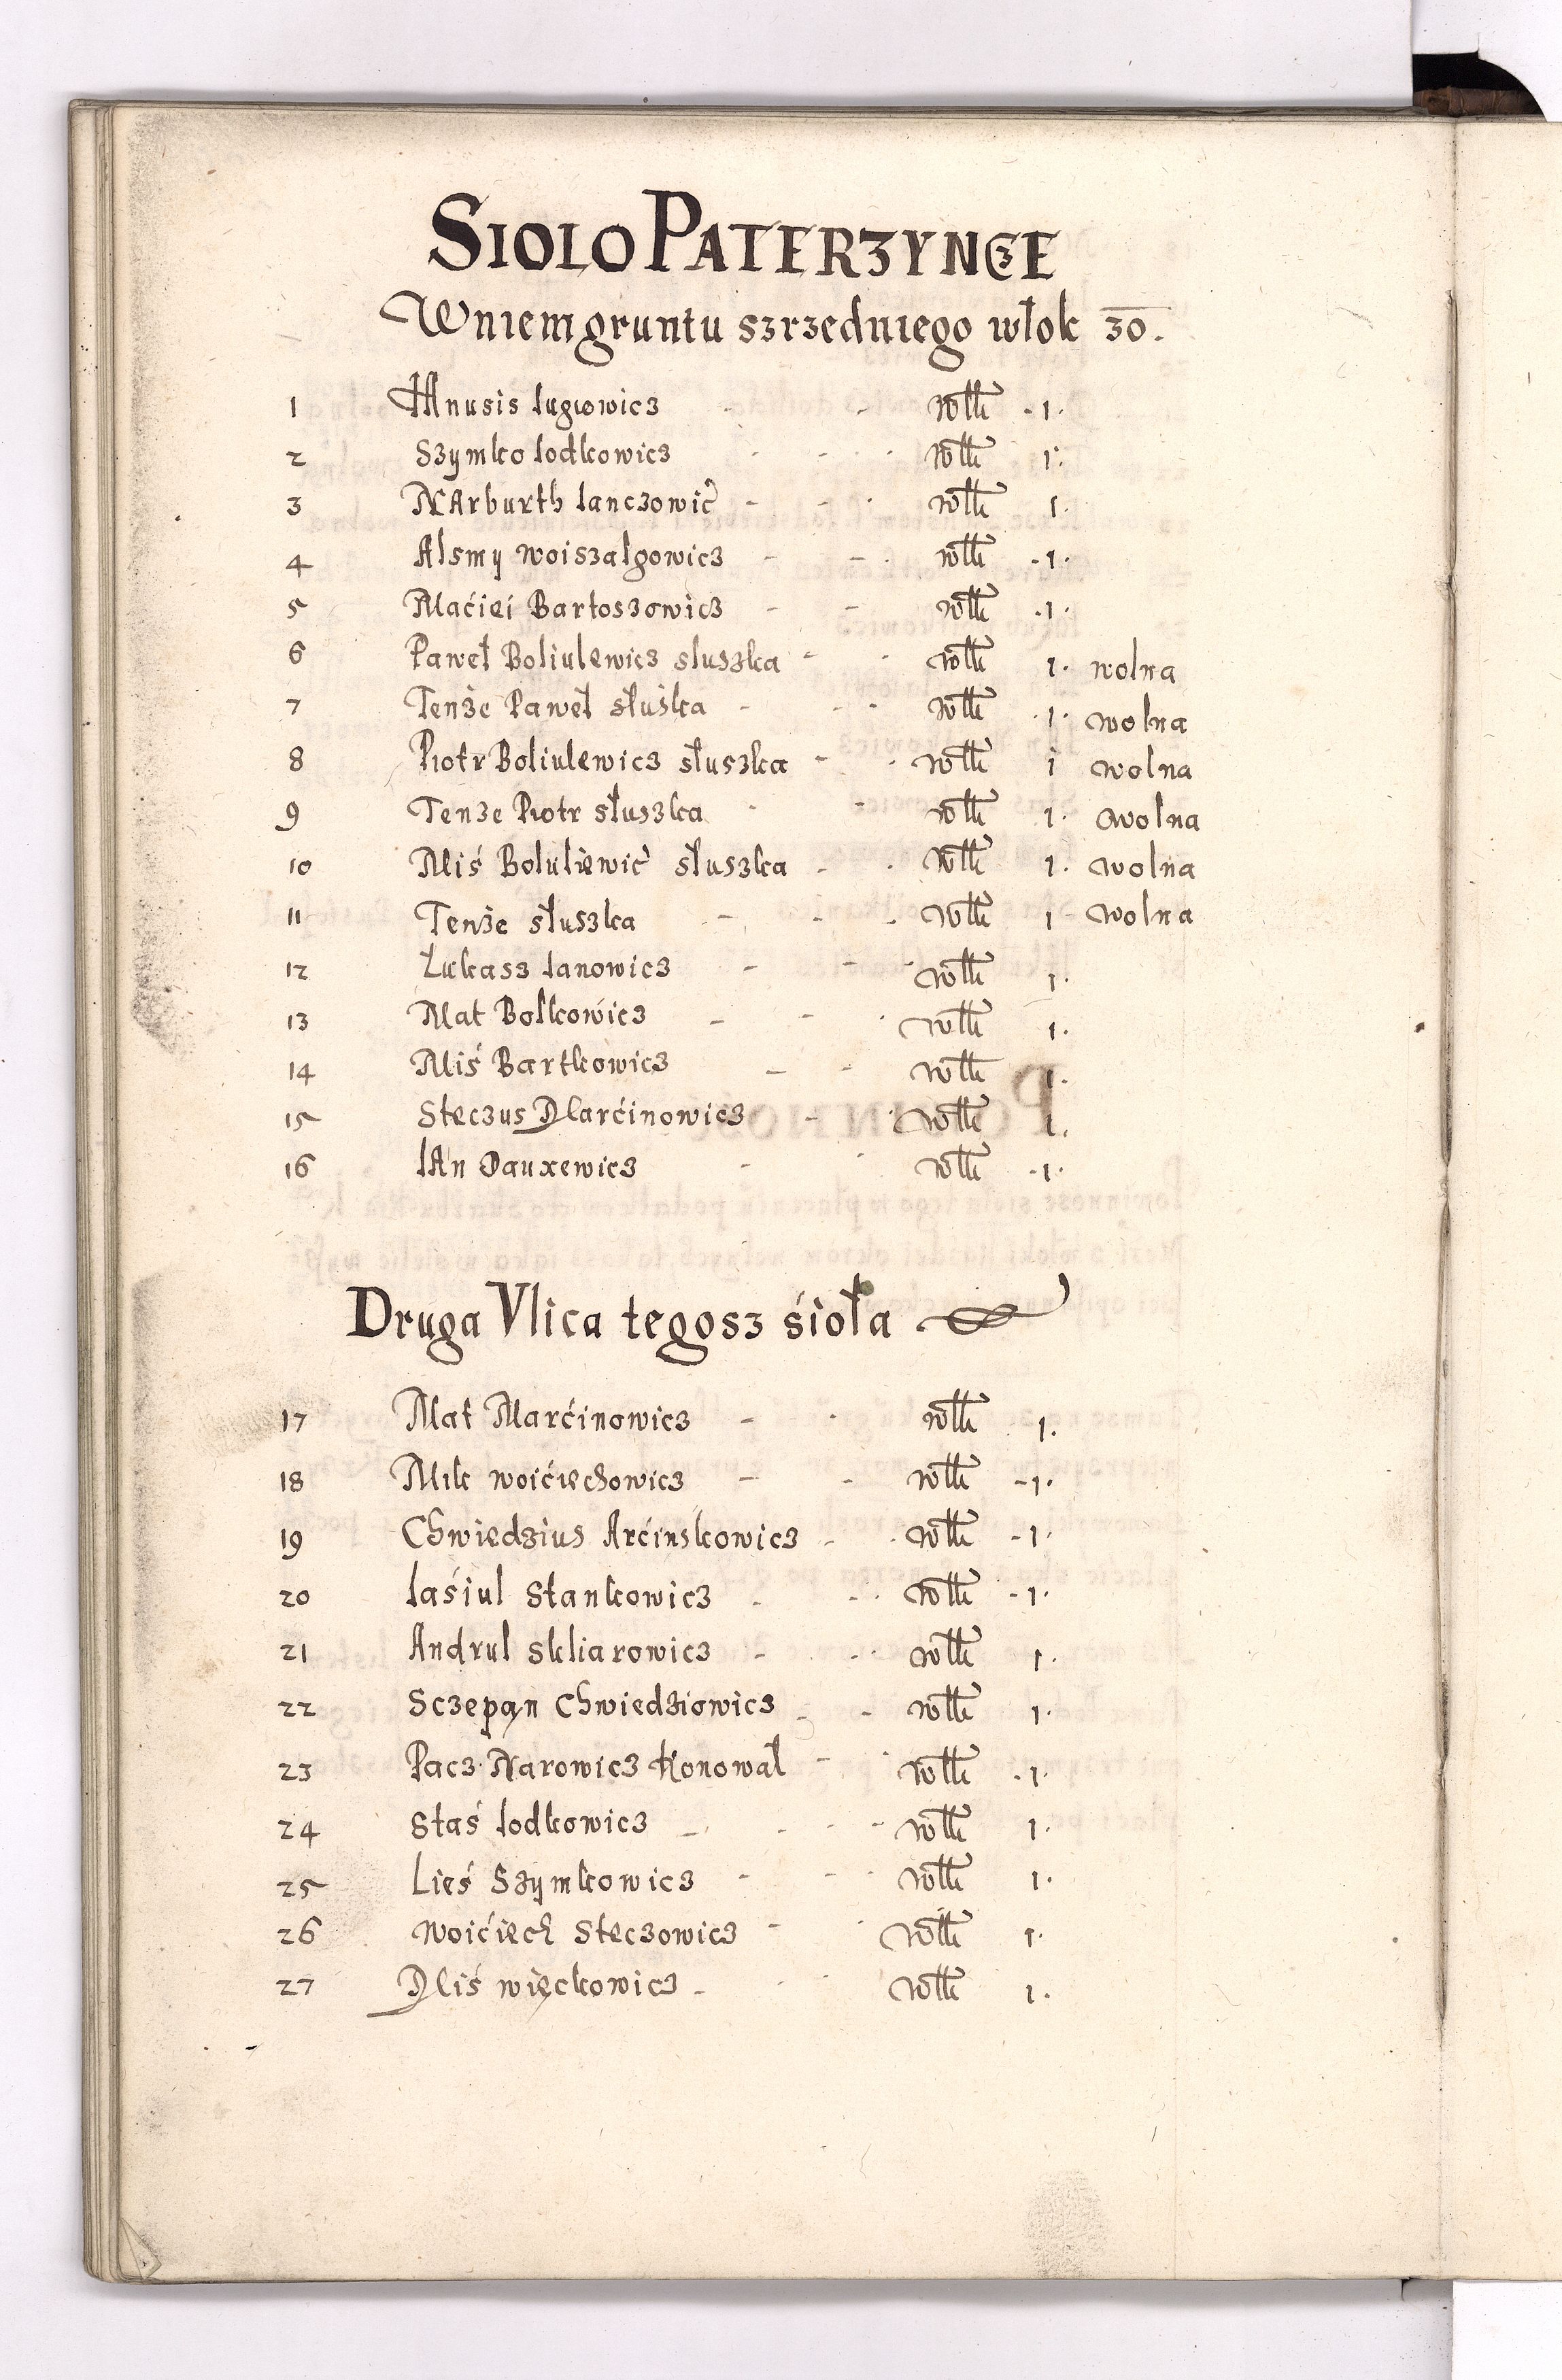 SIOLO PATERZYNCE
W niem gruntu szrzedniego włok 30.
1 Hanusis Iugiowicz - - włk - 1.
2 Szymko Iodkowicz - - - włk 1.
3 NArburth Ianczowic - - - włk 1.
4 Alsmy Woiszalgowicz - - - włk - 1.
5 Maćiei Bartoszowicz - - włk - 1.
6 Paweł Boliulewicz sluszka - - włk 1. wolna
7 Tenże Paweł słuśka - - - włk 1. wolna
8 Piotr Boliulewicz słuszka - - włk 1 wolna
9 Tenze Piotr słuszka - - włk 1. wolna
10 Miś Boluliewic słuszka - - włk 1. wolna
11 Tenże słuszka - - - włk 1 - wolna
12 Łukasz Ianowicz - - - włk 1.
13 Mat Bolkowicz - - - włk 1.
14 Miś Bartkowicz - - włk 1.
15 Steczus Marćinowicz - - włk 1.
16 IAn Dauxewicz - - włk - 1.
Druga Vlica tegosz śioła
17 Mat Marćinowicz - - włk 1.
18 Mik Woićiechowicz - - włk - 1.
19 Chwiedzius Arćinskowicz - - włk - 1.
20 Iaśiul Stankowicz - - - włk - 1.
21 Andrul Skliarowicz - - - włk 1.
22 Sczepąn Chwiedziowicz - - włk 1.
23 Pacz Narowicz Konował - - włk - 1.
24 Staś Iodkowicz - - - - włk 1.
25 Lieś Szymkowicz - - - włk 1.
26 Woićiech Steczowicz - - włk 1.
27 Miś więckowicz - - - włk 1.